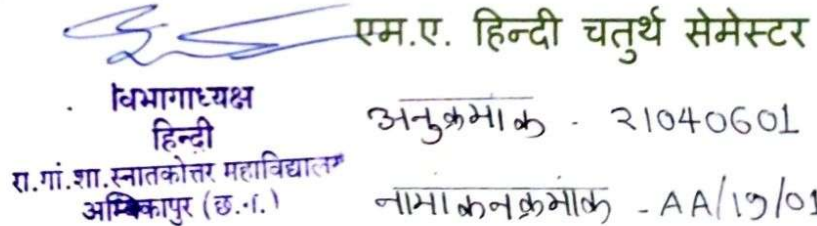 एम.ए. हिन्दी चतुर्थ सेमेस्टर
विभागाध्यक्ष
हिन्दी
रा.गां.शा.स्नातकोत्तर महाविद्यालय
अम्बिकापुर (छ.ग.)
अनुक्रमांक - 21040601
नामांकनक्रमांक - AA/19/01